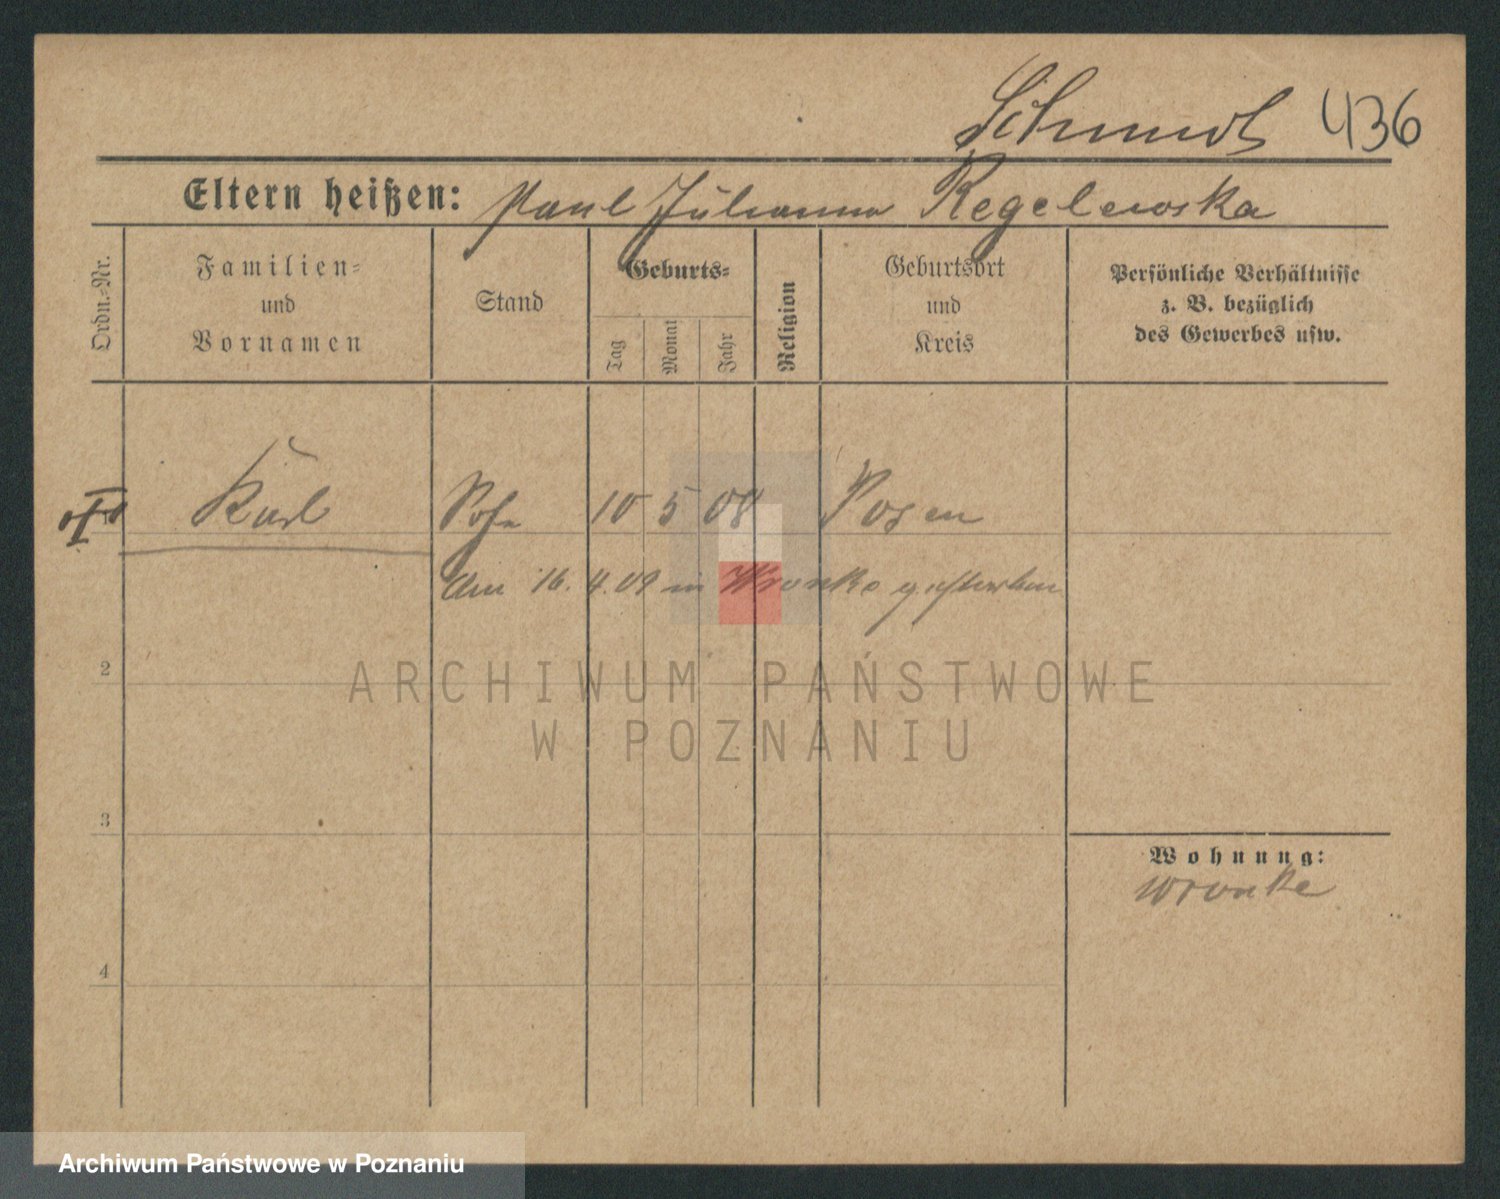 Schmidt 436
Eltern heißen: Paul Julianna Regelewska
Ordn.-Nr.
Familien-
und
Vornamen
Stand
Geburts-
Tag
Monat
Jahr
Religion
Geburtsort
und
Kreis
Persönliche Verhältnisse
z. B. bezüglich
des Gewerbes usw.
Karl Sohn 10 5 08 Posen
Am 16. 4. 09 in Wronke gestorben
2
ARCHIWUM PAŃSTWOWE
W POZNANIU
3
Wohnung:
Wronke
4
Archiwum Państwowe w Poznaniu